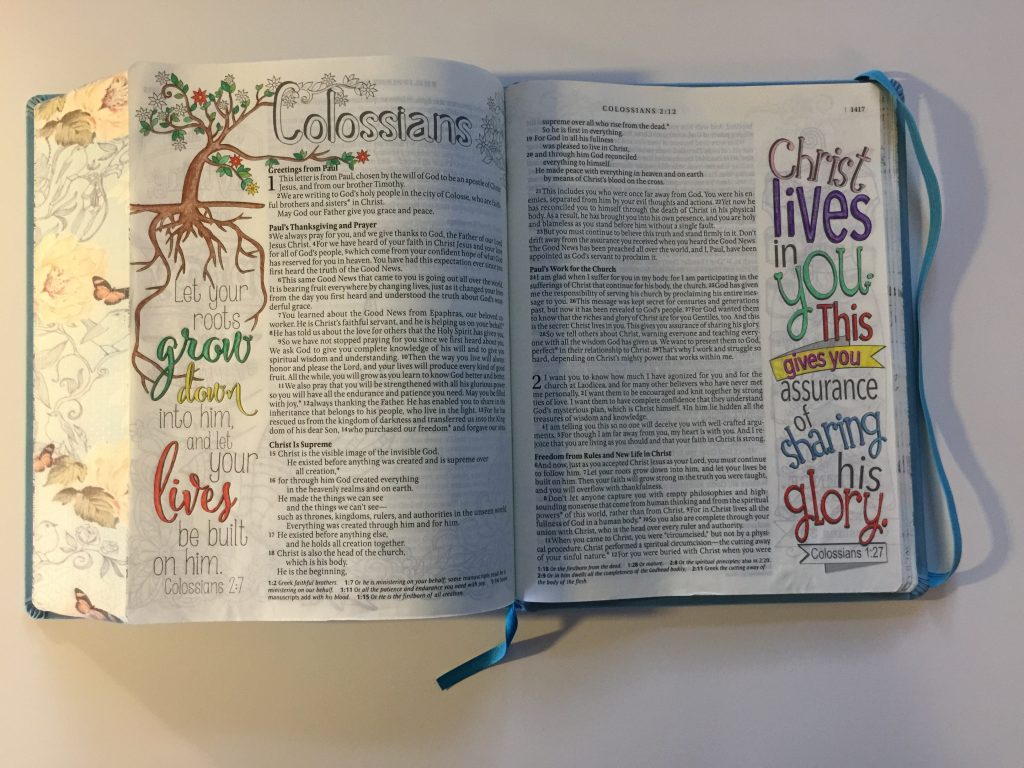 Colossians
Greetings from Paul
1 This letter is from Paul, chosen by the will of God to be an apostle of Christ
Jesus, and from our brother Timothy.
2 We are writing to God's holy people in the city of Colosse, who are faith-
ful brothers and sisters* in Christ.
May God our Father give you grace and peace.
Paul's Thanksgiving and Prayer
3 We always pray for you, and we give thanks to God, the Father of our Lord
Jesus Christ. 4 For we have heard of your faith in Christ Jesus and your love
for all of God's people, 5 which come from your confident hope of what God
has reserved for you in heaven. You have had this expectation ever since you
first heard the truth of the Good News.
6 This same Good News that came to you is going out all over the world.
It is bearing fruit everywhere by changing lives, just as it changed your lives
from the day you first heard and understood the truth about God's won-
derful grace.
7 You learned about the Good News from Epaphras, our beloved co-
worker. He is Christ's faithful servant, and he is helping us on your behalf.*
8 He has told us about the love for others that the Holy Spirit has given you.
9 So we have not stopped praying for you since we first heard about you.
We ask God to give you complete knowledge of his will and to give you
spiritual wisdom and understanding. 10 Then the way you live will always
honor and please the Lord, and your lives will produce every kind of good
fruit. All the while, you will grow as you learn to know God better and better.
11 We also pray that you will be strengthened with all his glorious power
so you will have all the endurance and patience you need. May you be filled
with joy,* 12 always thanking the Father. He has enabled you to share in the
inheritance that belongs to his people, who live in the light. 13 For he has
rescued us from the kingdom of darkness and transferred us into the King-
dom of his dear Son, 14 who purchased our freedom* and forgave our sins.
Christ Is Supreme
15 Christ is the visible image of the invisible God.
He existed before anything was created and is supreme over
all creation,*
16 for through him God created everything
in the heavenly realms and on earth.
He made the things we can see
and the things we can't see—
such as thrones, kingdoms, rulers, and authorities in the unseen world.
Everything was created through him and for him.
17 He existed before anything else,
and he holds all creation together.
18 Christ is also the head of the church,
which is his body.
He is the beginning,
1:2 Greek faithful brothers. 1:7 Or he is ministering on your behalf; some manuscripts read he is
ministering on our behalf. 1:11 Or all the patience and endurance you need with joy. 1:14 Some
manuscripts add with his blood. 1:15 Or He is the firstborn of all creation.
Let your
roots
grow
down
into him,
and let
your
lives
be built
on him.
Colossians 2:7
COLOSSIANS 2:12
1417
supreme over all who rise from the dead.*
So he is first in everything.
19 For God in all his fullness
was pleased to live in Christ,
20 and through him God reconciled
everything to himself.
He made peace with everything in heaven and on earth
by means of Christ's blood on the cross.
21 This includes you who were once far away from God. You were his en-
emies, separated from him by your evil thoughts and actions. 22 Yet now he
has reconciled you to himself through the death of Christ in his physical
body. As a result, he has brought you into his own presence, and you are holy
and blameless as you stand before him without a single fault.
23 But you must continue to believe this truth and stand firmly in it. Don't
drift away from the assurance you received when you heard the Good News.
The Good News has been preached all over the world, and I, Paul, have been
appointed as God's servant to proclaim it.
Paul's Work for the Church
24 I am glad when I suffer for you in my body, for I am participating in the
sufferings of Christ that continue for his body, the church. 25 God has given
me the responsibility of serving his church by proclaiming his entire mes-
sage to you. 26 This message was kept secret for centuries and generations
past, but now it has been revealed to God's people. 27 For God wanted them
to know that the riches and glory of Christ are for you Gentiles, too. And this
is the secret: Christ lives in you. This gives you assurance of sharing his glory.
28 So we tell others about Christ, warning everyone and teaching every-
one with all the wisdom God has given us. We want to present them to God,
perfect* in their relationship to Christ. 29 That's why I work and struggle so
hard, depending on Christ's mighty power that works within me.
2 1 I want you to know how much I have agonized for you and for the
church at Laodicea, and for many other believers who have never met
me personally. 2 I want them to be encouraged and knit together by strong
ties of love. I want them to have complete confidence that they understand
God's mysterious plan, which is Christ himself. 3 In him lie hidden all the
treasures of wisdom and knowledge.
4 I am telling you this so no one will deceive you with well-crafted argu-
ments. 5 For though I am far away from you, my heart is with you. And I re-
joice that you are living as you should and that your faith in Christ is strong.
Freedom from Rules and New Life in Christ
6 And now, just as you accepted Christ Jesus as your Lord, you must continue
to follow him. 7 Let your roots grow down into him, and let your lives be
built on him. Then your faith will grow strong in the truth you were taught,
and you will overflow with thankfulness.
8 Don't let anyone capture you with empty philosophies and high-
sounding nonsense that come from human thinking and from the spiritual
powers* of this world, rather than from Christ. 9 For in Christ lives all the
fullness of God in a human body.* 10 So you also are complete through your
union with Christ, who is the head over every ruler and authority.
11 When you came to Christ, you were "circumcised," but not by a physi-
cal procedure. Christ performed a spiritual circumcision—the cutting away
of your sinful nature.* 12 For you were buried with Christ when you were
1:18 Or the firstborn from the dead. 1:28 Or mature. 2:8 Or the spiritual principles; also in 2:20.
2:9 Or in him dwells all the completeness of the Godhead bodily. 2:11 Greek the cutting away of
the body of the flesh.
Christ
lives
in
you.
This
gives you
assurance
of
sharing
his
glory.
Colossians 1:27